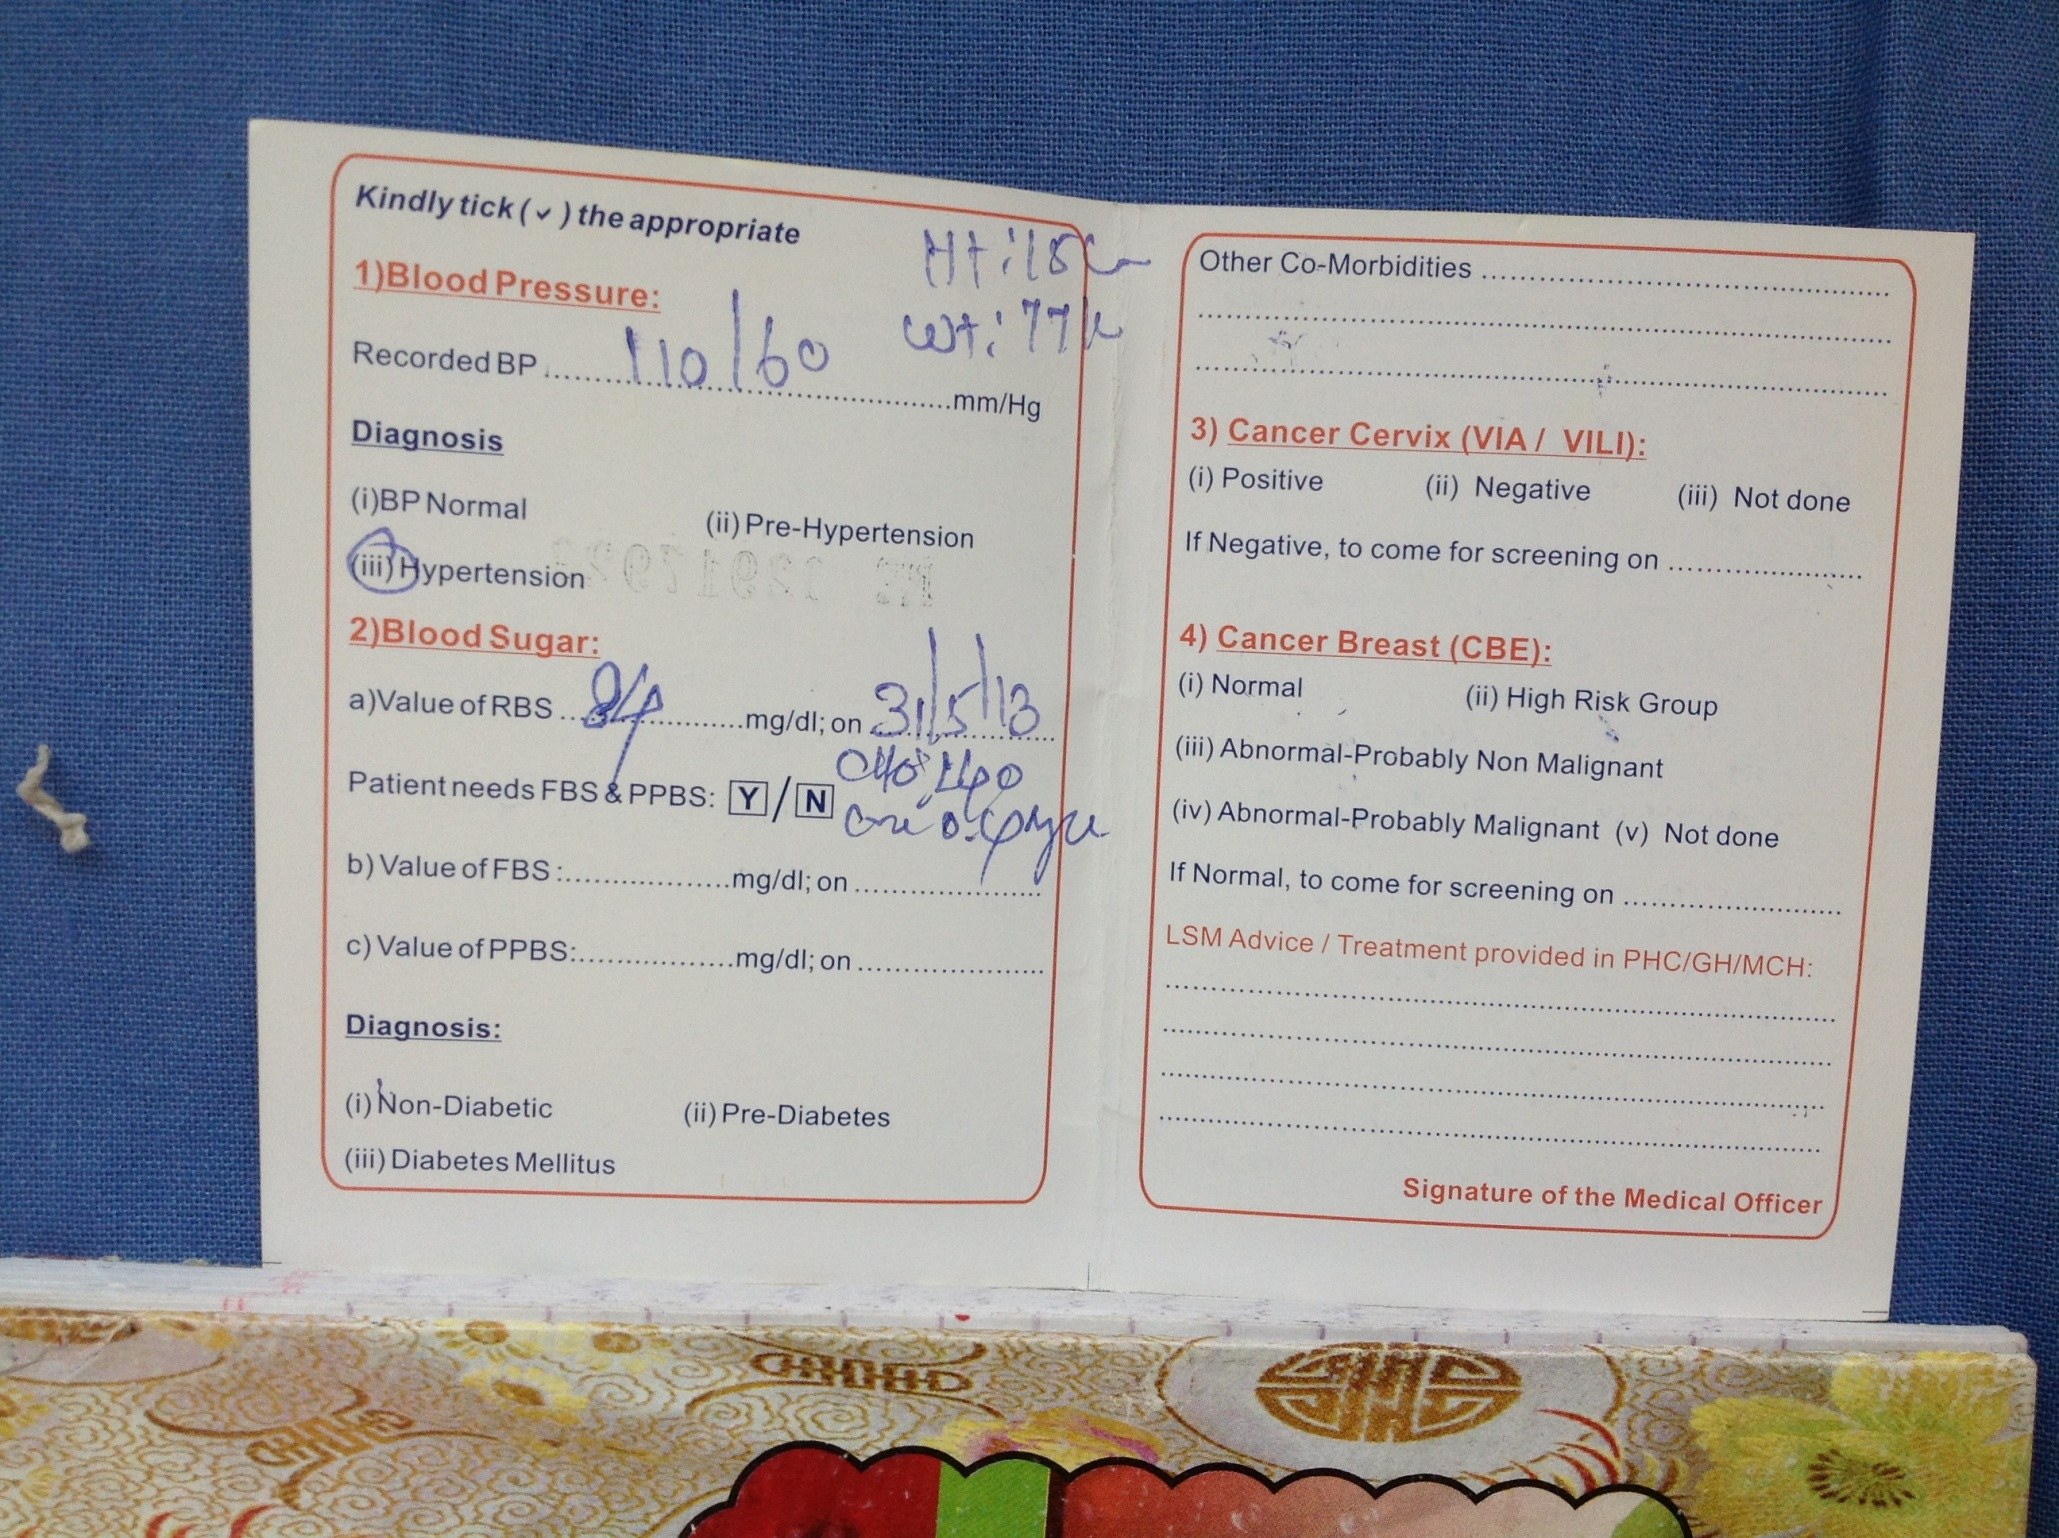 Kindly tick (✓) the appropriate
Ht:
wt: 77k
1)Blood Pressure:
Recorded BP ........ 110/60 ........mm/Hg
Diagnosis
(i)BP Normal (ii) Pre-Hypertension
(iii) Hypertension
2)Blood Sugar:
a)Value of RBS ... 84 ...mg/dl; on 31/5/13
Patient needs FBS & PPBS: Y / N
b) Value of FBS :..................mg/dl; on ....................
c) Value of PPBS:.................mg/dl; on ....................
Diagnosis:
(i) Non-Diabetic (ii) Pre-Diabetes
(iii) Diabetes Mellitus
Other Co-Morbidities ........................................
3) Cancer Cervix (VIA / VILI):
(i) Positive (ii) Negative (iii) Not done
If Negative, to come for screening on ....................
4) Cancer Breast (CBE):
(i) Normal (ii) High Risk Group
(iii) Abnormal-Probably Non Malignant
(iv) Abnormal-Probably Malignant (v) Not done
If Normal, to come for screening on ......................
LSM Advice / Treatment provided in PHC/GH/MCH:
Signature of the Medical Officer